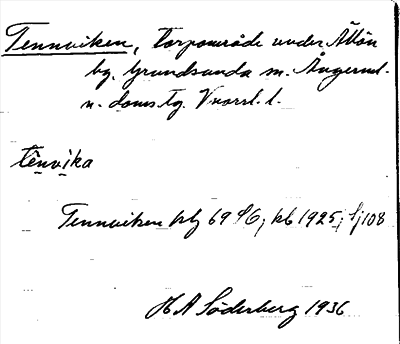 Tennviken, Torpområde under Ällön
by. Grundsunda sn. Ångerml.
n. doms. Tg. Vnorrl. l.
tēnvīka
Tennviken kbj 69 86; kb 1925; lj 108
H A Söderberg 1936